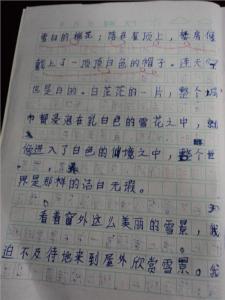 雪白的棉花；落在屋顶上，给房屋
戴上了一顶顶白色的帽子。连天
也是白的。白茫茫的一片，整个城
市都浸泡在乳白色的雪花之中，
佛进入了白色的仙境之中，整个世
界是那样的洁白无瑕。
看着窗外这么美丽的雪景，我
迫不及待地来到屋外欣赏雪景。我